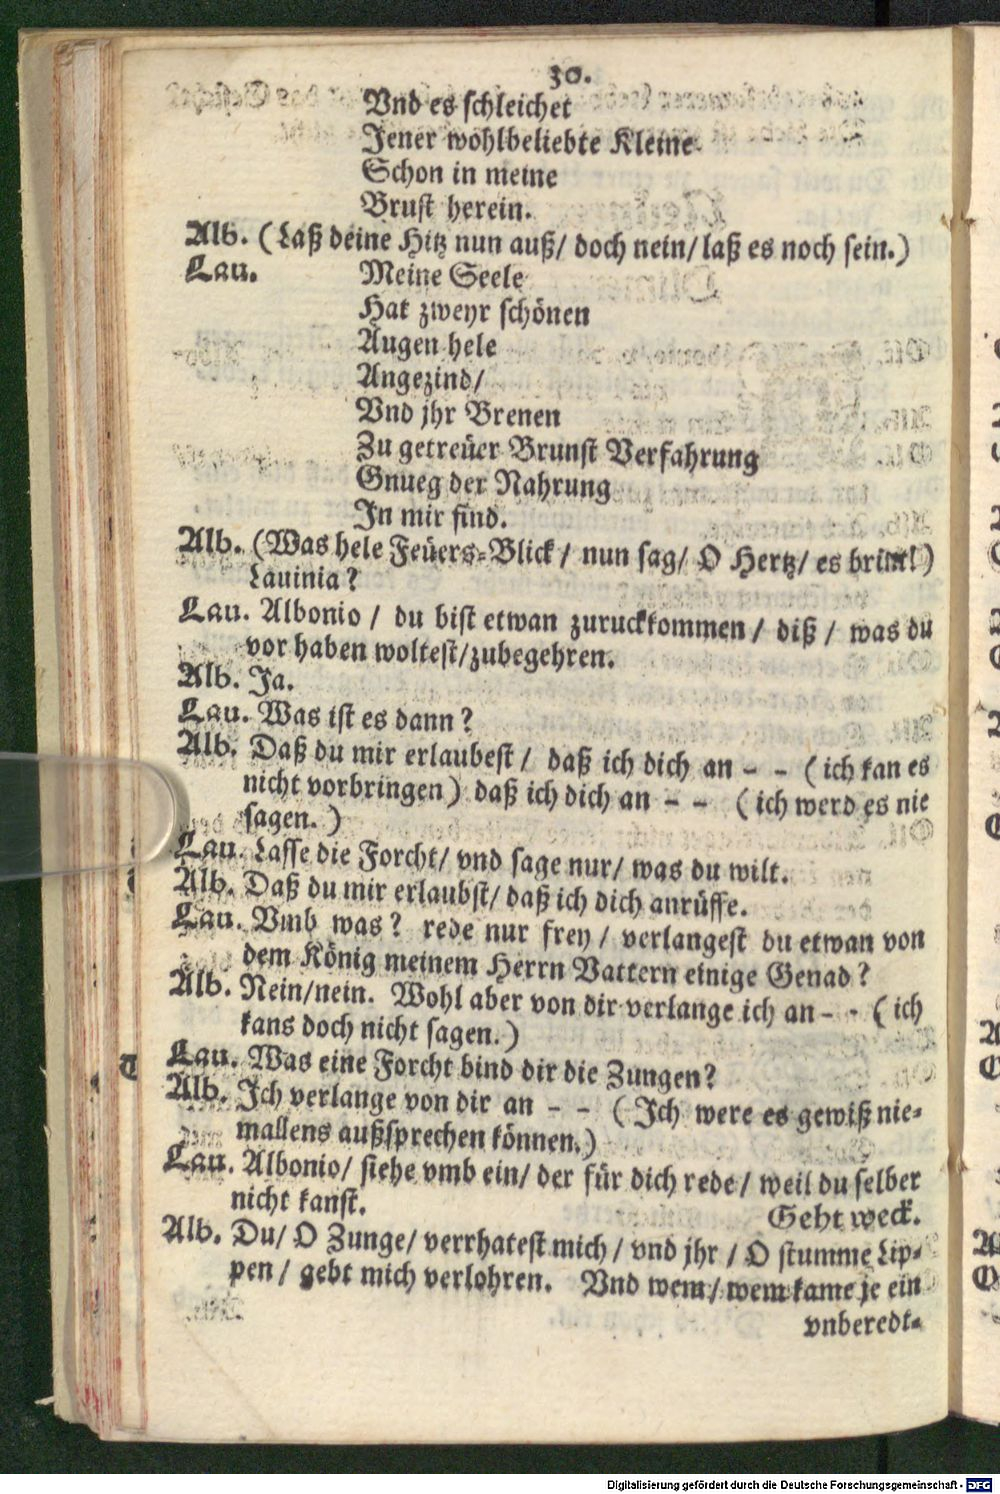 30.
Vnd es schleichet
Jener wohlbeliebte Kleine
Schon in meine
Brust herein.
Alb. (Laß deine Hitz nun auß/ doch nein/ laß es noch sein.)
Lau. Meine Seele
Hat zweyr schönen
Augen hele
Angezind/
Vnd jhr Brenen
Zu getreüer Brunst Verfahrung
Gnueg der Nahrung
In mir find.
Alb. (Was hele Feüers-Blick / nun sag/ O Hertz/ es brint!)
Lauinia?
Lau. Albonio / du bist etwan zuruckkommen / diß / was du
vor haben woltest/zubegehren.
Alb. Ja.
Lau. Was ist es dann?
Alb. Daß du mir erlaubest / daß ich dich an - - (ich kan es
nicht vorbringen) daß ich dich an - - (ich werd es nie
sagen.)
Lau. Lasse die Forcht/ vnd sage nur/ was du wilt.
Alb. Daß du mir erlaubst/ daß ich dich anrüffe.
Lau. Vmb was? rede nur frey / verlangest du etwan von
dem König meinem Herrn Vattern einige Genad?
Alb. Nein/nein. Wohl aber von dir verlange ich an - - (ich
kans doch nicht sagen.)
Lau. Was eine Forcht bind dir die Zungen?
Alb. Ich verlange von dir an - - (Ich were es gewiß nie-
mallens außsprechen können.)
Lau. Albonio/ siehe vmb ein/ der für dich rede/ weil du selber
nicht kanst. Geht weck.
Alb. Du/ O Zunge/ verrhatest mich / vnd jhr / O stumme Lip-
pen / gebt mich verlohren. Vnd wem / wem kame je ein
vnberedt-
Digitalisierung gefördert durch die Deutsche Forschungsgemeinschaft - DFG